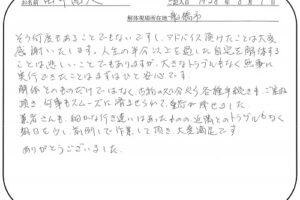 お名前
ご記入日
解体現場所在地 船橋市
そう何度もあることでもないですし、アドバイス頂けたことは大変
感謝いたします。人生の半分以上を過した自宅を解体する
ことは悲しいことでもありますが、大きなトラブルもなく無事に
実行できたことはまずはひと安心です。
解体とのものだけではなく、お初の処分から各種手続きもご案内
頂き何事もスムーズに済ませられて、
業者さんも、細かな行き違いはあったものの、近隣とのトラブルもなく
毎日を少し前倒しで作業して頂き、大変満足です
ありがとうございました。